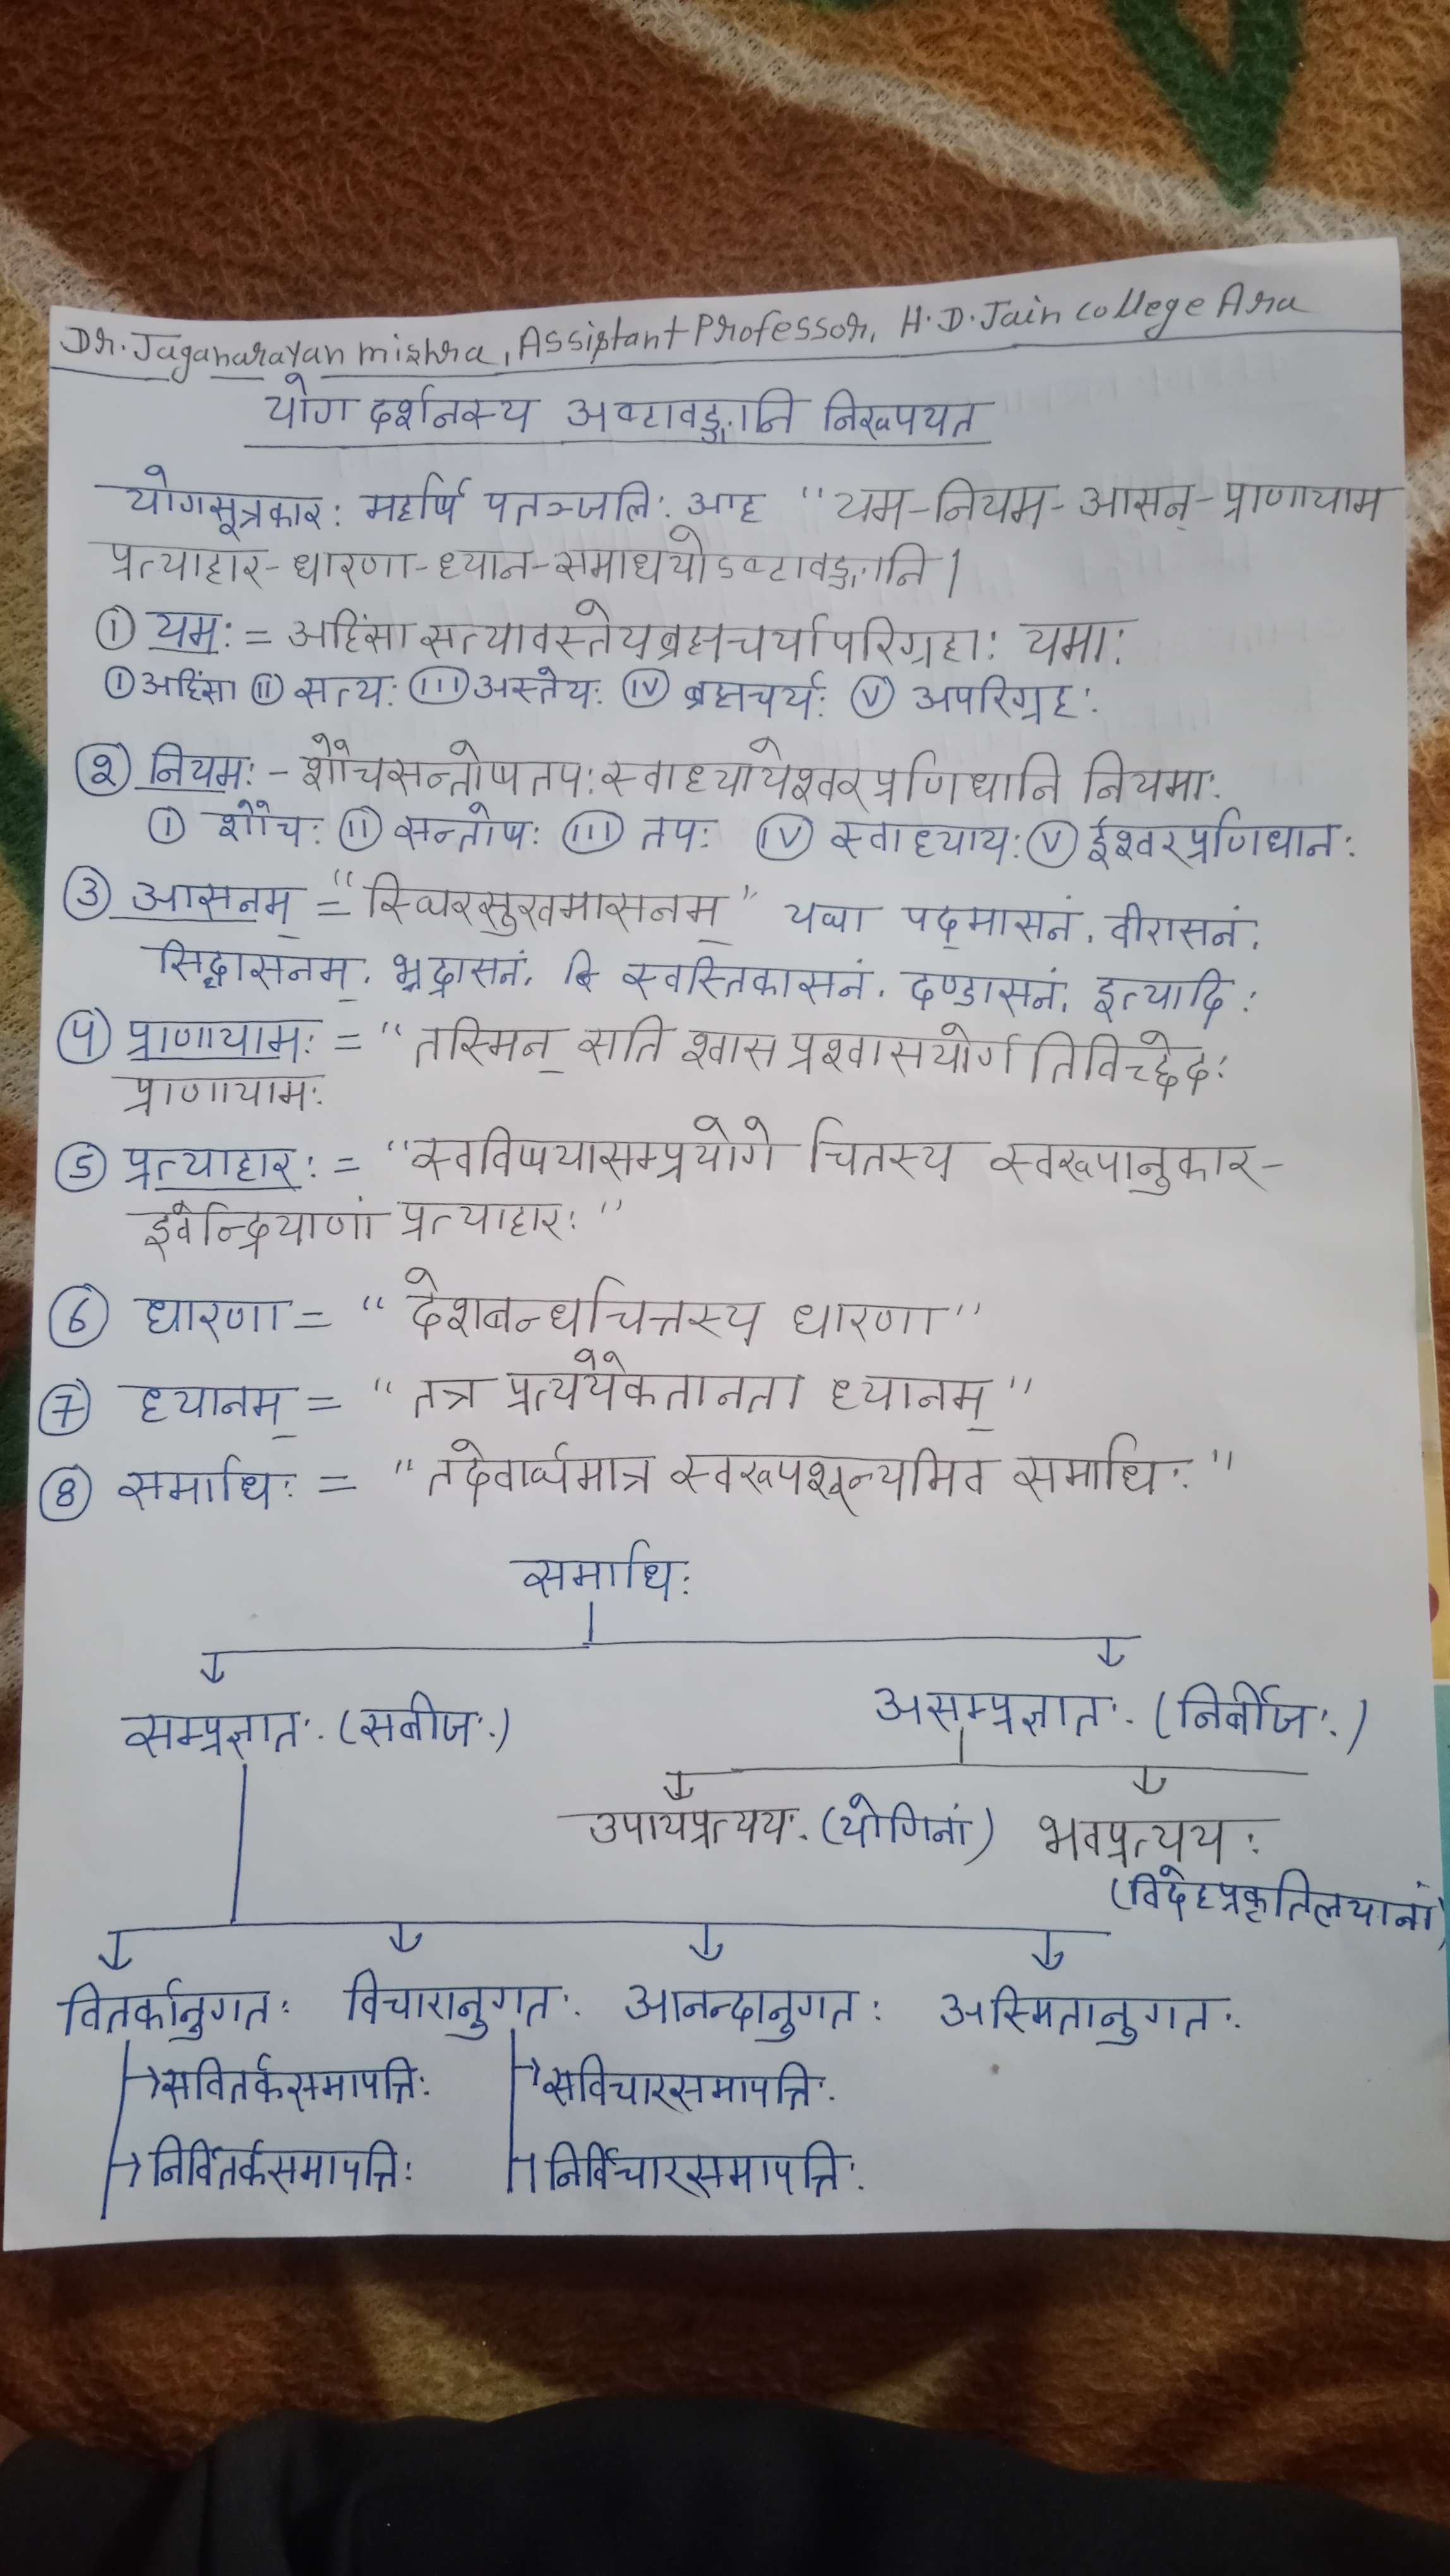 Dr. Jaganarayan mishra, Assistant Professor, H.D. Jain college Ara
योग दर्शनस्य अष्टावङ्गानि निरूपयत
योगसूत्रकारः महर्षि पतञ्जलिः आह "यम-नियम-आसन्-प्राणायाम
प्रत्याहार-धारणा-ध्यान-समाधयोऽष्टावङ्गानि।
① यमः = अहिंसा सत्यावस्तेयब्रह्मचर्यापरिग्रहाः यमाः
Ⓘ अहिंसा ⒾⒾ सत्यः ⒾⒾⒾ अस्तेयः ⒾⓋ ब्रह्मचर्यः Ⓥ अपरिग्रहः
② नियमः - शौचसन्तोषतपःस्वाध्यायेश्वरप्रणिधानि नियमाः
Ⓘ शौचः ⒾⒾ सन्तोषः ⒾⒾⒾ तपः ⒾⓋ स्वाध्यायः Ⓥ ईश्वरप्रणिधानः
③ आसनम् = "स्थिरसुखमासनम्" यथा पद्मासनं, वीरासनं,
सिद्धासनम्, भद्रासनं, स्वस्तिकासनं, दण्डासनं, इत्यादिः
④ प्राणायामः = "तस्मिन् सति श्वास प्रश्वासयोर्गतिविच्छेदः
प्राणायामः
⑤ प्रत्याहारः = "स्वविषयासम्प्रयोगे चितस्य स्वरूपानुकार-
इवेन्द्रियाणां प्रत्याहारः"
⑥ धारणा = "देशबन्धचित्तस्य धारणा"
⑦ ध्यानम् = "तत्र प्रत्ययैकतानता ध्यानम्"
⑧ समाधिः = "तदेवार्थमात्र स्वरूपशून्यमिव समाधिः"
समाधिः
सम्प्रज्ञातः (सबीजः) असम्प्रज्ञातः (निर्बीजः)
उपायप्रत्ययः (योगिनां) भवप्रत्ययः
(विदेहप्रकृतिलयानां)
वितर्कानुगतः विचारानुगतः आनन्दानुगतः अस्मितानुगतः
→सवितर्कसमापत्तिः →सविचारसमापत्तिः
→निर्वितर्कसमापत्तिः →निर्विचारसमापत्तिः